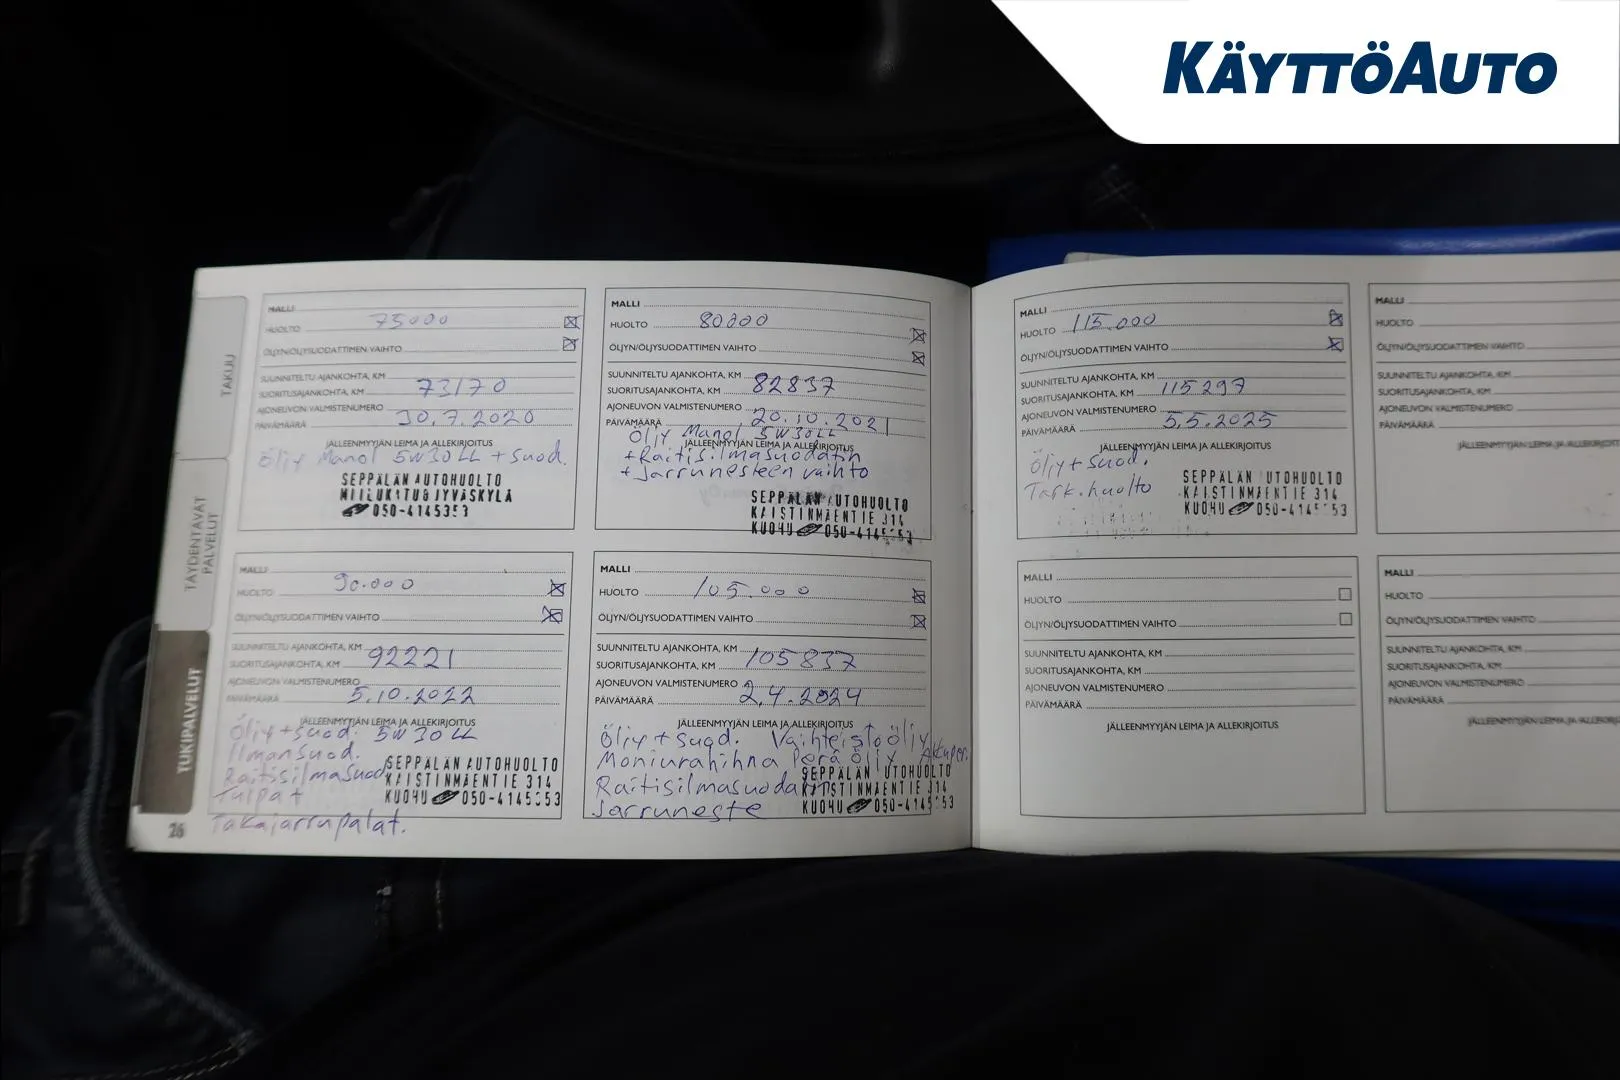 KÄYTTÖAUTO
TAKUU
TÄYDENTÄVÄT PALVELUT
TUKIPALVELUT
26
MALLI
HUOLTO 75000
ÖLJYN/ÖLJYSUODATTIMEN VAIHTO
SUUNNITELTU AJANKOHTA, KM
SUORITUSAJANKOHTA, KM 73170
AJONEUVON VALMISTENUMERO
PÄIVÄMÄÄRÄ 30.7.2020
JÄLLEENMYYJÄN LEIMA JA ALLEKIRJOITUS
Öljy Manol 5W30LL + suod.
SEPPÄLÄN AUTOHUOLTO
JYVÄSKYLÄ
050-4145353
MALLI
HUOLTO 80000
ÖLJYN/ÖLJYSUODATTIMEN VAIHTO
SUUNNITELTU AJANKOHTA, KM
SUORITUSAJANKOHTA, KM 82837
AJONEUVON VALMISTENUMERO
PÄIVÄMÄÄRÄ 20.10.2021
Öljy Manol 5W30LL
JÄLLEENMYYJÄN LEIMA JA ALLEKIRJOITUS
+ Raitisilmasuodatin
+ Jarrunesteen vaihto
SEPPÄLÄN AUTOHUOLTO
KAISTINMÄENTIE 314
KUOHU 050-4145353
MALLI
HUOLTO 90.000
ÖLJYN/ÖLJYSUODATTIMEN VAIHTO
SUUNNITELTU AJANKOHTA, KM
SUORITUSAJANKOHTA, KM 92221
AJONEUVON VALMISTENUMERO
PÄIVÄMÄÄRÄ 5.10.2022
JÄLLEENMYYJÄN LEIMA JA ALLEKIRJOITUS
Öljy + suod. 5W30LL
Ilmansuod.
Raitisilmasuod
Tulpat
Takajarrupalat.
SEPPÄLÄN AUTOHUOLTO
KAISTINMÄENTIE 314
KUOHU 050-4145353
MALLI
HUOLTO 105.000
ÖLJYN/ÖLJYSUODATTIMEN VAIHTO
SUUNNITELTU AJANKOHTA, KM
SUORITUSAJANKOHTA, KM 105837
AJONEUVON VALMISTENUMERO
PÄIVÄMÄÄRÄ 2.4.2024
JÄLLEENMYYJÄN LEIMA JA ALLEKIRJOITUS
Öljy + suod. Vaihteistoöljy
Moniurahihna Peräöljy
Raitisilmasuodatin
Jarruneste
SEPPÄLÄN AUTOHUOLTO
KAISTINMÄENTIE 314
KUOHU 050-4145353
MALLI
HUOLTO 115.000
ÖLJYN/ÖLJYSUODATTIMEN VAIHTO
SUUNNITELTU AJANKOHTA, KM
SUORITUSAJANKOHTA, KM 115297
AJONEUVON VALMISTENUMERO
PÄIVÄMÄÄRÄ 5.5.2025
JÄLLEENMYYJÄN LEIMA JA ALLEKIRJOITUS
Öljy + suod.
Tark.huolto
SEPPÄLÄN AUTOHUOLTO
KAISTINMÄENTIE 314
KUOHU 050-4145353
MALLI
HUOLTO
ÖLJYN/ÖLJYSUODATTIMEN VAIHTO
SUUNNITELTU AJANKOHTA, KM
SUORITUSAJANKOHTA, KM
AJONEUVON VALMISTENUMERO
PÄIVÄMÄÄRÄ
JÄLLEENMYYJÄN LEIMA JA ALLEKIRJOITUS
MALLI
HUOLTO
ÖLJYN/ÖLJYSUODATTIMEN VAIHTO
SUUNNITELTU AJANKOHTA, KM
SUORITUSAJANKOHTA, KM
AJONEUVON VALMISTENUMERO
PÄIVÄMÄÄRÄ
JÄLLEENMYYJÄN LEIMA JA
MALLI
HUOLTO
ÖLJYN/ÖLJYSUODATTIMEN VAIHTO
SUUNNITELTU AJANKOHTA, KM
SUORITUSAJANKOHTA, KM
AJONEUVON VALMISTENUMERO
PÄIVÄMÄÄRÄ
JÄLLEENMYYJÄN LEIMA JA